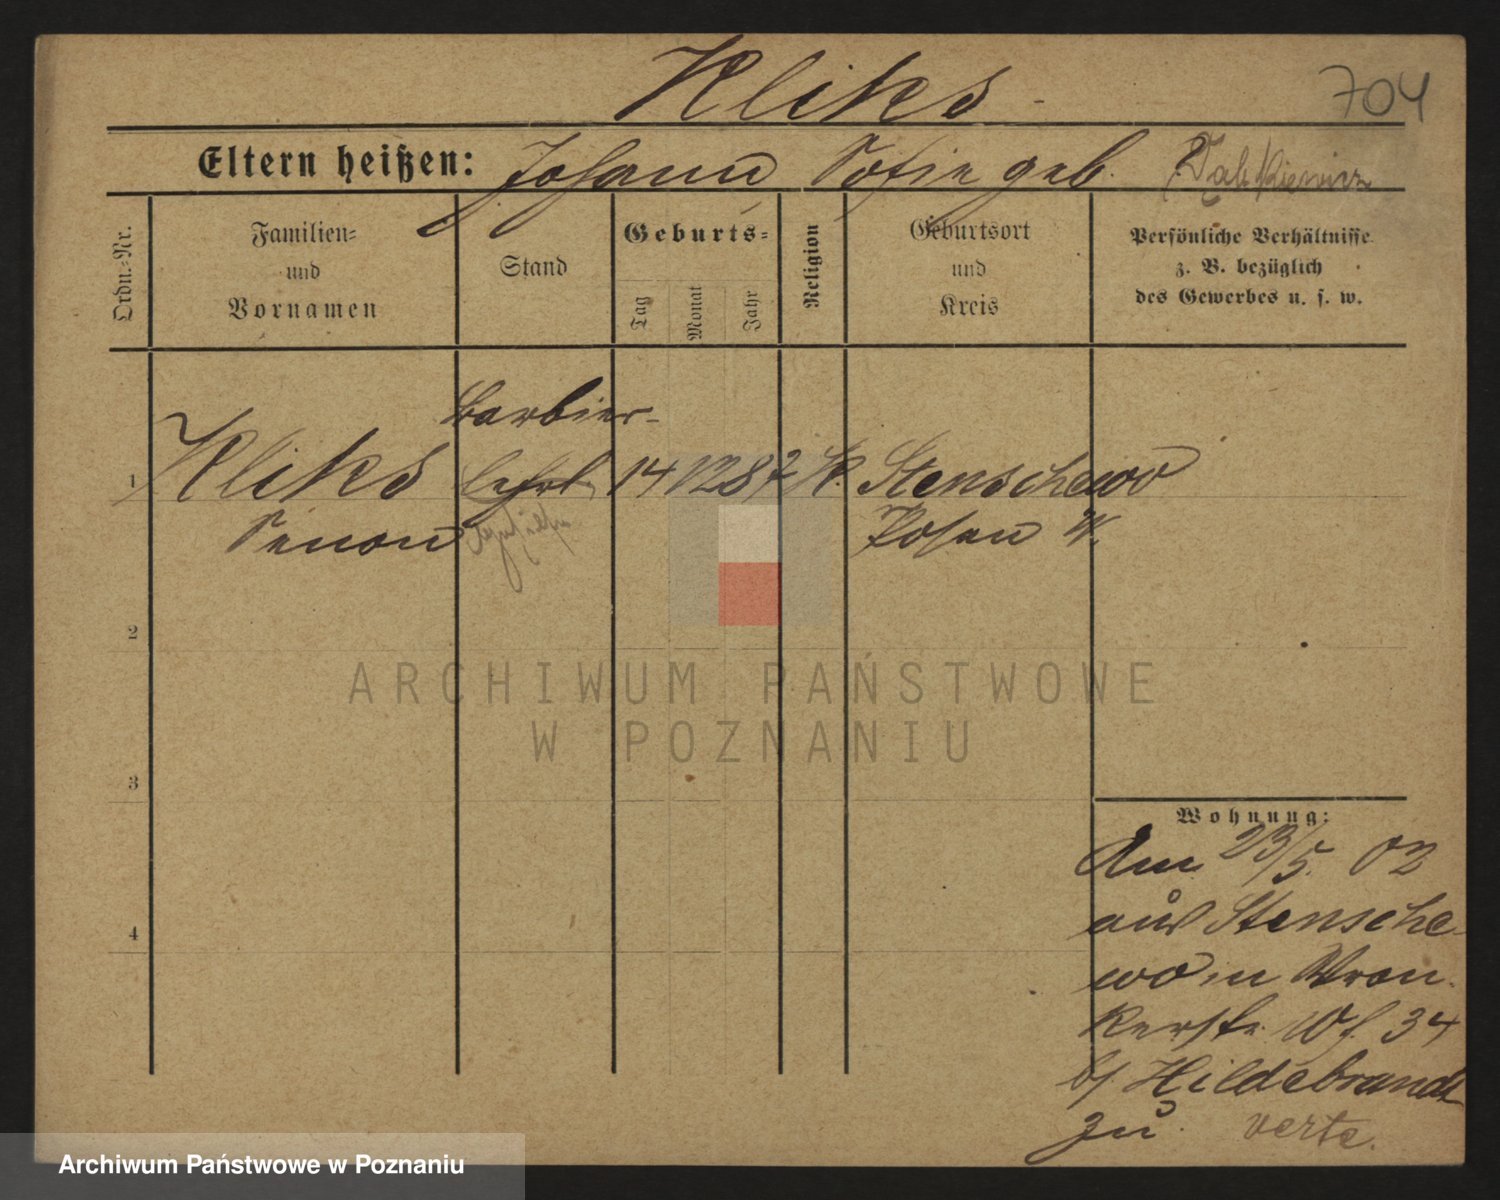 Kliks
704
Eltern heißen: Johann Sofie geb.
Ordn.-Nr.
Familien-
und
Vornamen
Stand
Geburts-
Tag
Monat
Jahr
Religion
Geburtsort
und
Kreis
Persönliche Verhältnisse
z. B. bezüglich
des Gewerbes u. s. w.
Barbier-
1 Kliks lehrl. 14 12 87 K. Stenschewo
Senon Posen W.
2
3
4
Wohnung:
Am 23/5. 02
aus Stensche-
wo in Wron-
kerstr. 10 f. 34
b/ Hildebrandt
zu. verte.
ARCHIWUM PAŃSTWOWE
W POZNANIU
Archiwum Państwowe w Poznaniu